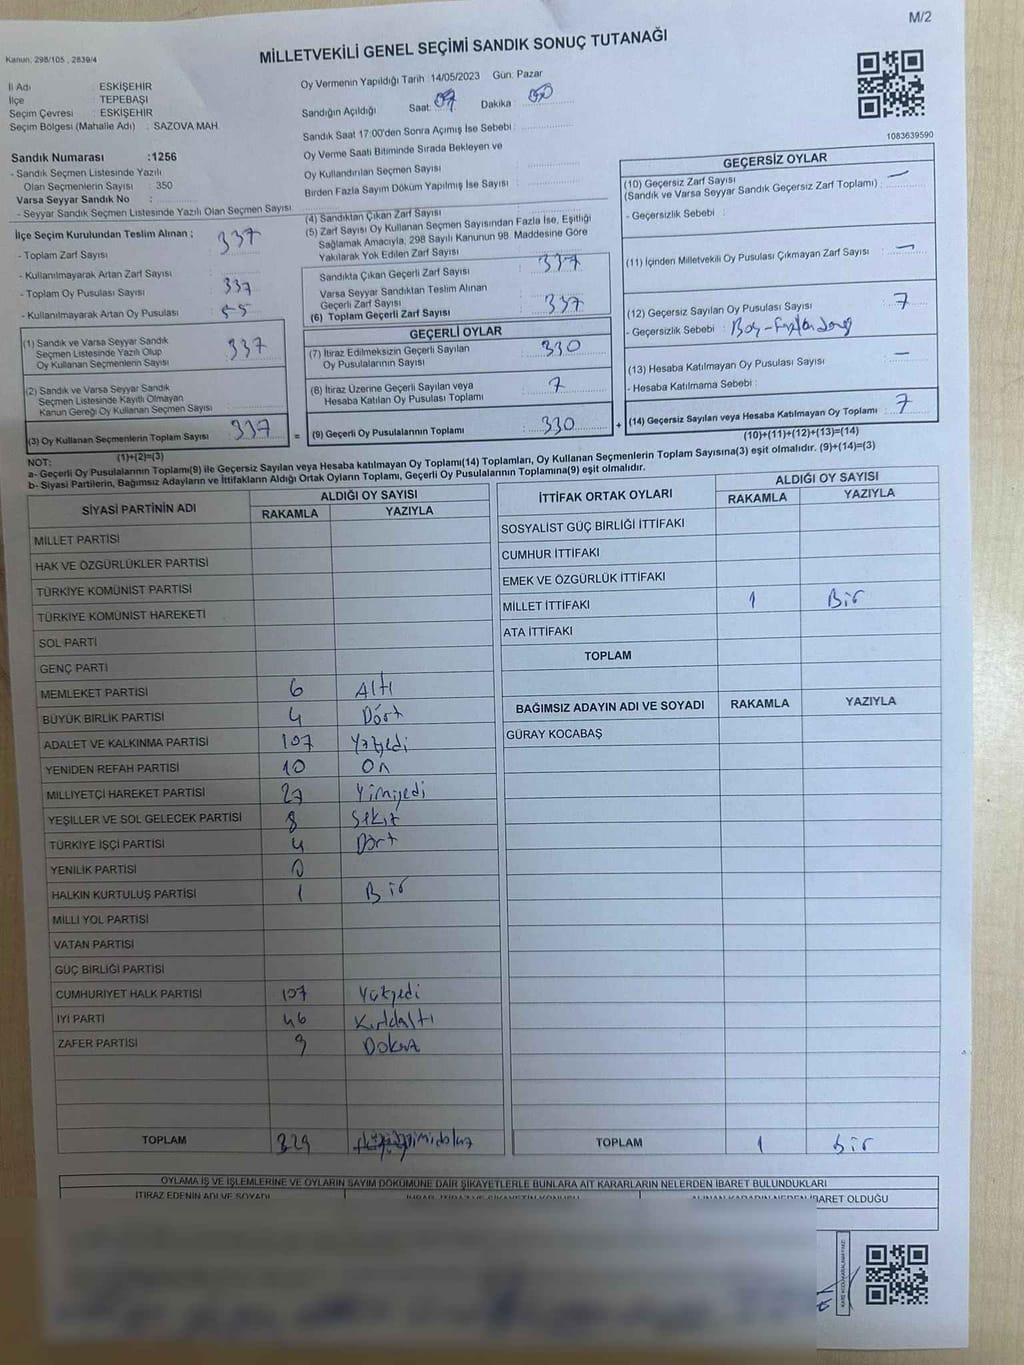 M/2
MİLLETVEKİLİ GENEL SEÇİMİ SANDIK SONUÇ TUTANAĞI
Kanun: 298/105 , 2839/4
İl Adı : ESKİŞEHİR
İlçe : TEPEBAŞI
Seçim Çevresi : ESKİŞEHİR
Seçim Bölgesi (Mahalle Adı) : SAZOVA MAH.
Sandık Numarası :1256
- Sandık Seçmen Listesinde Yazılı
Olan Seçmenlerin Sayısı : 350
Varsa Seyyar Sandık No :
- Seyyar Sandık Seçmen Listesinde Yazılı Olan Seçmen Sayısı
Oy Vermenin Yapıldığı Tarih : 14/05/2023 Gün: Pazar
Sandığın Açıldığı Saat: Dakika :
Sandık Saat 17:00'den Sonra Açımış İse Sebebi :
Oy Verme Saati Bitiminde Sırada Bekleyen ve
Oy Kullandırılan Seçmen Sayısı :
Birden Fazla Sayım Döküm Yapılmış İse Sayısı :
1083639590
İlçe Seçim Kurulundan Teslim Alınan ;
- Toplam Zarf Sayısı : 337
- Kullanılmayarak Artan Zarf Sayısı :
- Toplam Oy Pusulası Sayısı : 337
- Kullanılmayarak Artan Oy Pusulası : 55
(1) Sandık ve Varsa Seyyar Sandık
Seçmen Listesinde Yazılı Olup
Oy Kullanan Seçmenlerin Sayısı : 337
(2) Sandık ve Varsa Seyyar Sandık
Seçmen Listesinde Kayıtlı Olmayan
Kanun Gereği Oy Kullanan Seçmen Sayısı :
(3) Oy Kullanan Seçmenlerin Toplam Sayısı : 337
(1)+(2)=(3)
(4) Sandıktan Çıkan Zarf Sayısı :
(5) Zarf Sayısı Oy Kullanan Seçmen Sayısından Fazla İse, Eşitliği
Sağlamak Amacıyla, 298 Sayılı Kanunun 98. Maddesine Göre
Yakılarak Yok Edilen Zarf Sayısı :
Sandıkta Çıkan Geçerli Zarf Sayısı : 337
Varsa Seyyar Sandıktan Teslim Alınan
Geçerli Zarf Sayısı :
(6) Toplam Geçerli Zarf Sayısı : 337
GEÇERLİ OYLAR
(7) İtiraz Edilmeksizin Geçerli Sayılan
Oy Pusulalarının Sayısı : 330
(8) İtiraz Üzerine Geçerli Sayılan veya
Hesaba Katılan Oy Pusulası Toplamı : 7
= (9) Geçerli Oy Pusulalarının Toplamı : 330
GEÇERSİZ OYLAR
(10) Geçersiz Zarf Sayısı
(Sandık ve Varsa Seyyar Sandık Geçersiz Zarf Toplamı) : —
- Geçersizlik Sebebi :
(11) İçinden Milletvekili Oy Pusulası Çıkmayan Zarf Sayısı : —
(12) Geçersiz Sayılan Oy Pusulası Sayısı : 7
- Geçersizlik Sebebi : Boş-Fazladan
(13) Hesaba Katılmayan Oy Pusulası Sayısı : —
- Hesaba Katılmama Sebebi :
+ (14) Geçersiz Sayılan veya Hesaba Katılmayan Oy Toplamı : 7
(10)+(11)+(12)+(13)=(14)
NOT:
a- Geçerli Oy Pusulalarının Toplamı(9) ile Geçersiz Sayılan veya Hesaba katılmayan Oy Toplamı(14) Toplamları, Oy Kullanan Seçmenlerin Toplam Sayısına(3) eşit olmalıdır. (9)+(14)=(3)
b- Siyasi Partilerin, Bağımsız Adayların ve İttifakların Aldığı Ortak Oyların Toplamı, Geçerli Oy Pusulalarının Toplamına(9) eşit olmalıdır.
SİYASİ PARTİNİN ADI ALDIĞI OY SAYISI
RAKAMLA YAZIYLA
MİLLET PARTİSİ
HAK VE ÖZGÜRLÜKLER PARTİSİ
TÜRKİYE KOMÜNİST PARTİSİ
TÜRKİYE KOMÜNİST HAREKETİ
SOL PARTİ
GENÇ PARTİ
MEMLEKET PARTİSİ 6 Altı
BÜYÜK BİRLİK PARTİSİ 4 Dört
ADALET VE KALKINMA PARTİSİ 107 Yüzyedi
YENİDEN REFAH PARTİSİ 10 On
MİLLİYETÇİ HAREKET PARTİSİ 27 Yirmiyedi
YEŞİLLER VE SOL GELECEK PARTİSİ 8 Sekiz
TÜRKİYE İŞÇİ PARTİSİ 4 Dört
YENİLİK PARTİSİ 0
HALKIN KURTULUŞ PARTİSİ 1 Bir
MİLLİ YOL PARTİSİ
VATAN PARTİSİ
GÜÇ BİRLİĞİ PARTİSİ
CUMHURİYET HALK PARTİSİ 107 Yüzyedi
İYİ PARTİ 46 Kırkaltı
ZAFER PARTİSİ 9 Dokuz
TOPLAM 329
İTTİFAK ORTAK OYLARI ALDIĞI OY SAYISI
RAKAMLA YAZIYLA
SOSYALİST GÜÇ BİRLİĞİ İTTİFAKI
CUMHUR İTTİFAKI
EMEK VE ÖZGÜRLÜK İTTİFAKI
MİLLET İTTİFAKI 1 Bir
ATA İTTİFAKI
TOPLAM
BAĞIMSIZ ADAYIN ADI VE SOYADI RAKAMLA YAZIYLA
GÜRAY KOCABAŞ
TOPLAM 1 bir
OYLAMA İŞ VE İŞLEMLERİNE VE OYLARIN SAYIM DÖKÜMÜNE DAİR ŞİKAYETLERLE BUNLARA AİT KARARLARIN NELERDEN İBARET BULUNDUKLARI
İTİRAZ EDENİN ADI VE SOYADI
İBARET OLDUĞU